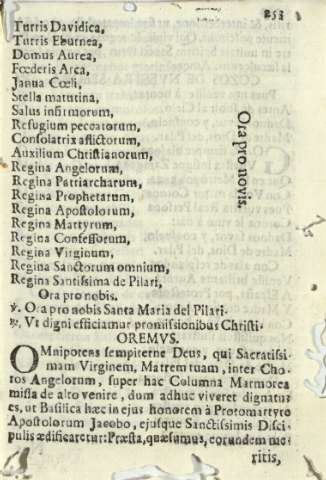 253
Turris Davidica,
Turris Eburnea,
Domus Aurea,
Fœderis Arca,
Janua Cœli,
Stella matutina,
Salus infirmorum,
Refugium peccatorum,
Consolatrix aflictorum,
Auxilium Christianorum,
Regina Angelorum,
Regina Patriarcharum,
Regina Prophetarum,
Regina Apostolorum,
Regina Martyrum,
Regina Confessorum,
Regina Virginum,
Regina Sanctorum omnium,
Regina Santissima de Pilari,
Ora pro novis.
Ora pro nobis.
℣. Ora pro nobis Santa Maria del Pilari.
℟. Ut digni efficiamur promissionibus Christi.
OREMVS.
OMnipotens sempiterne Deus, qui Sacratisi-
mam Virginem, Matrem tuam, inter Cho-
ros Angelorum, super hac Columna Marmorea
missa de alto venire, dum adhuc viveret dignatus
es, ut Basilica hæc in ejus honorem à Protomartyro
Apostolorum Jacobo, ejusque Sanctissimis Disci-
pulis ædificaretur: Præsta, quæsumus, eorundem me-
ritis,